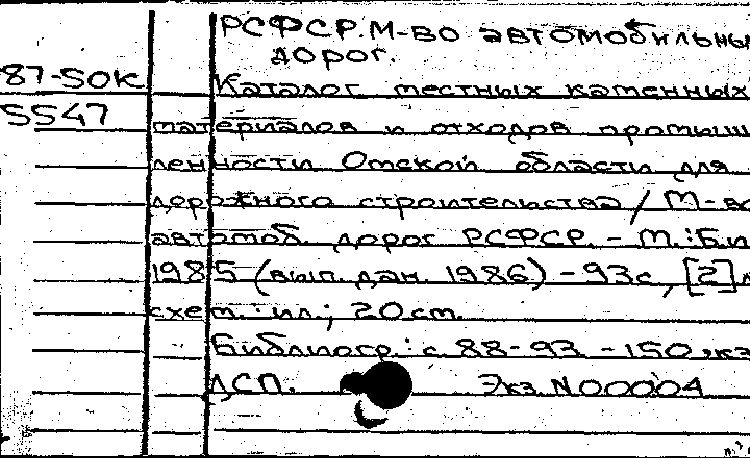 РСФСР. М-во автомобильны
дорог.
87-50К
5547
Каталог местных каменных
материалов и отходов промыш
ленности Омской области для
дорожного строительства / М-во
автомоб. дорог РСФСР. - М.: Б.и
1985 (вып. дан. 1986) - 93с, [2] л
схем.: ил.; 20 см.
Библиогр.: с. 88-93 - 150 экз
ДСП. Экз. N00004